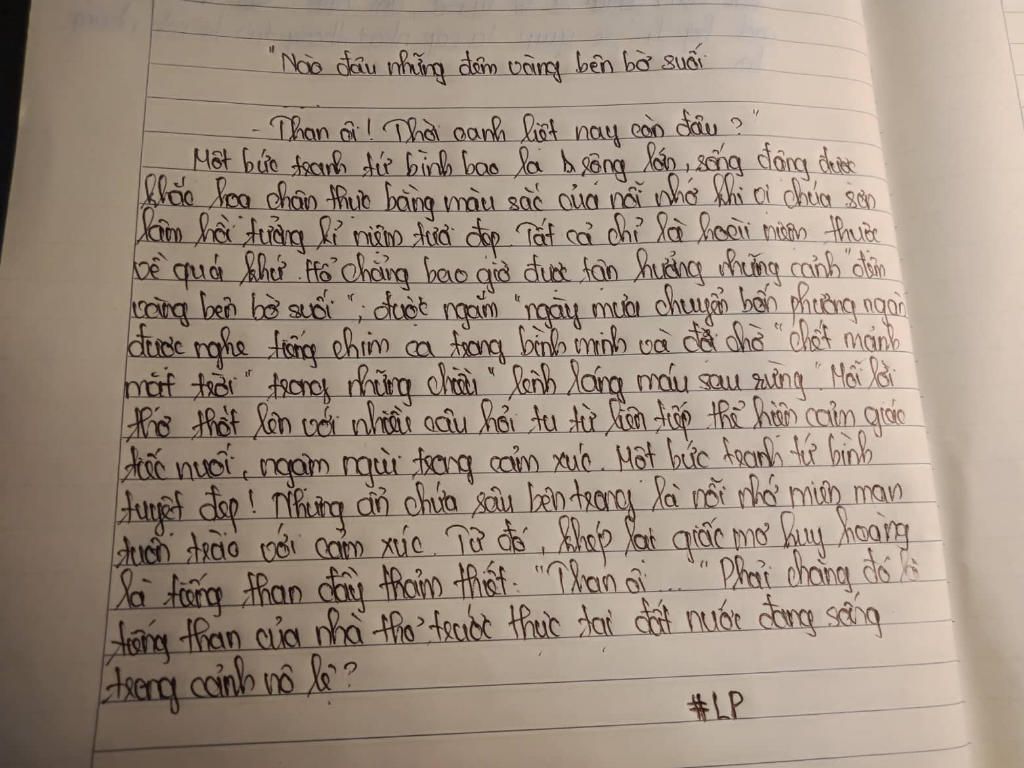 "Nào đâu những đêm vàng bên bờ suối
- Than ôi! Thời oanh liệt nay còn đâu?"
Một bức tranh tứ bình bao la, rộng lớn, sống động được
khắc hoạ chân thực bằng màu sắc của nỗi nhớ khi vị chúa sơn
lâm hồi tưởng kỉ niệm tươi đẹp. Tất cả chỉ là hoài niệm thuộc
về quá khứ. Hổ chẳng bao giờ được tận hưởng những cảnh "đêm
vàng bên bờ suối", được ngắm "ngày mưa chuyển bốn phương ngàn
được nghe tiếng chim ca trong bình minh và đợi chờ "chết mảnh
mặt trời" trong những chiều "lênh láng máu sau rừng". Mỗi lời
thơ thốt lên với nhiều câu hỏi tu từ liên tiếp thể hiện cảm giác
tiếc nuối, ngậm ngùi trong cảm xúc. Một bức tranh tứ bình
tuyệt đẹp! Nhưng ẩn chứa sâu bên trong là nỗi nhớ miên man
tuôn trào với cảm xúc. Từ đó, khép lại giấc mơ huy hoàng
là tiếng than đầy thảm thiết: "Than ôi..." Phải chăng đó là
tiếng than của nhà thơ trước thực tại đất nước đang sống
trong cảnh nô lệ?
#LP